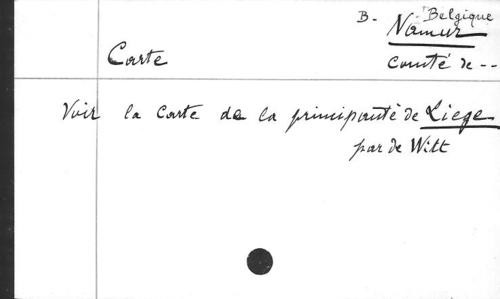 B. - Belgique
Namur
Carte Comté de --
Voir la Carte de la principauté de Liege
par de Witt